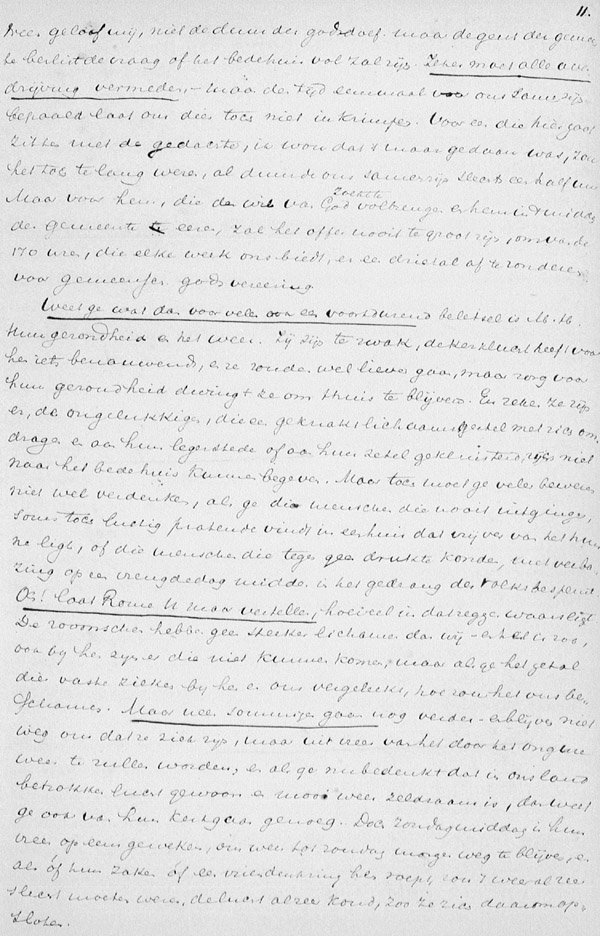 11.
Nees geloof mij, niet de duur der godsd. maar de geest der gemeen
te beslist de vraag of het bedehuis vol zal zijn. Zeker moet alle over
drijving vermeden - maar de tijd eenmaal voor ons samenzijn
bepaald laat ons dien toch niet inkrimpen. Voor een die hier gaat
zitten met de gedachte, ik wou dat 't maar gedaan was, zou
het toch te lang weren, al duurde ons samenzijn slechts een half uur
Maar voor hem, die den wil van God zoekt te volbrengen en hem in 't midden
der gemeente te eeren, zal het offer nooit te groot zijn, om van de
170 uren, die elke week ons biedt, er een drietal af te zonderen
voor gemeensch. godsvereering.
Weet ge wat dan voor velen ook een voortdurend beletsel is M.H.
Hun gezondheid en het weer. Zij zijn te zwak, de kerklucht heeft voor
hen iets benauwends, en ze zouden wel liever gaan, maar zorg voor
hun gezondheid dwingt ze om thuis te blijven. En zeker ze zijn
er, de ongelukkigen, die een geknakt lichaamsgestel met zich om
dragen en aan hun legerstede of aan hun zetel gekluisterd, zich niet
naar het bedehuis kunnen begeven. Maar toch moet ge velen beweren
niet wel verdenken, als ge die menschen die nooit uitgingen,
soms toch lustig pratende vindt in een huis dat vrij ver van het hun
ne ligt, of die menschen die tegen geen drukte konden, met verba
zing op een vreugdedag midden in het gedrang des volks bespeurt
O! laat Rome U maar vertellen, hoeveel in dat zeggen waars ligt.
De roomschen hebben geen sterker lichamen dan wij - en
ook bij hen zijn er die niet kunnen komen, maar als ge het getal
dier vaste zieken bij hen en ons vergelijkt, hoe zou het ons be
schamen. Maar neen sommigen gaan nog verder - en blijven niet
weg om dat ze ziek zijn, maar uit vrees van het door het ongure
weer te zullen worden; en als ge nu bedenkt dat in ons land
betrokken lucht gewoon en mooi weer zeldzaam is, dan weet
ge ook van hun kerkgaan genoeg. Doch zondagmiddag is hun
vrees op eens geweken, om weer tot zondag morgen weg te blijven, en
als of hun zaken of een vriendenkring hen roept, zou 't weer al zeer
slecht moeten weren, de lucht al zeer koud, zoo ze zich daarom op-
sloten.